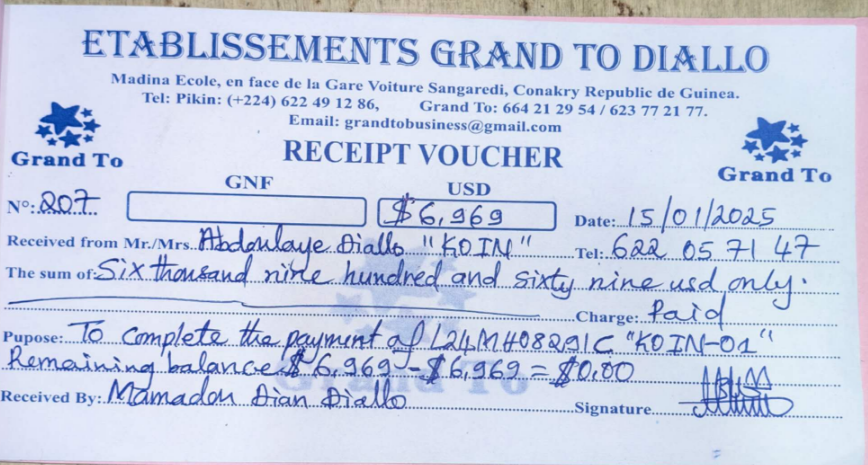 ETABLISSEMENTS GRAND TO DIALLO
Madina Ecole, en face de la Gare Voiture Sangaredi, Conakry Republic de Guinea.
Tel: Pikin: (+224) 622 49 12 86, Grand To: 664 21 29 54 / 623 77 21 77.
Email: grandtobusiness@gmail.com
Grand To
RECEIPT VOUCHER
Grand To
GNF USD
N°: 207 $6,969 Date: 15/01/2025
Received from Mr./Mrs. Abdoulaye Diallo "KOIN" Tel: 622 05 71 47
The sum of: Six thousand nine hundred and sixty nine usd only.
Charge: Paid
Pupose: To complete the payment of L24MH08291C "KOIN-01"
Remaining balance $6,969 - $6,969 = $0,00
Grand To
Received By: Mamadou Dian Diallo Signature